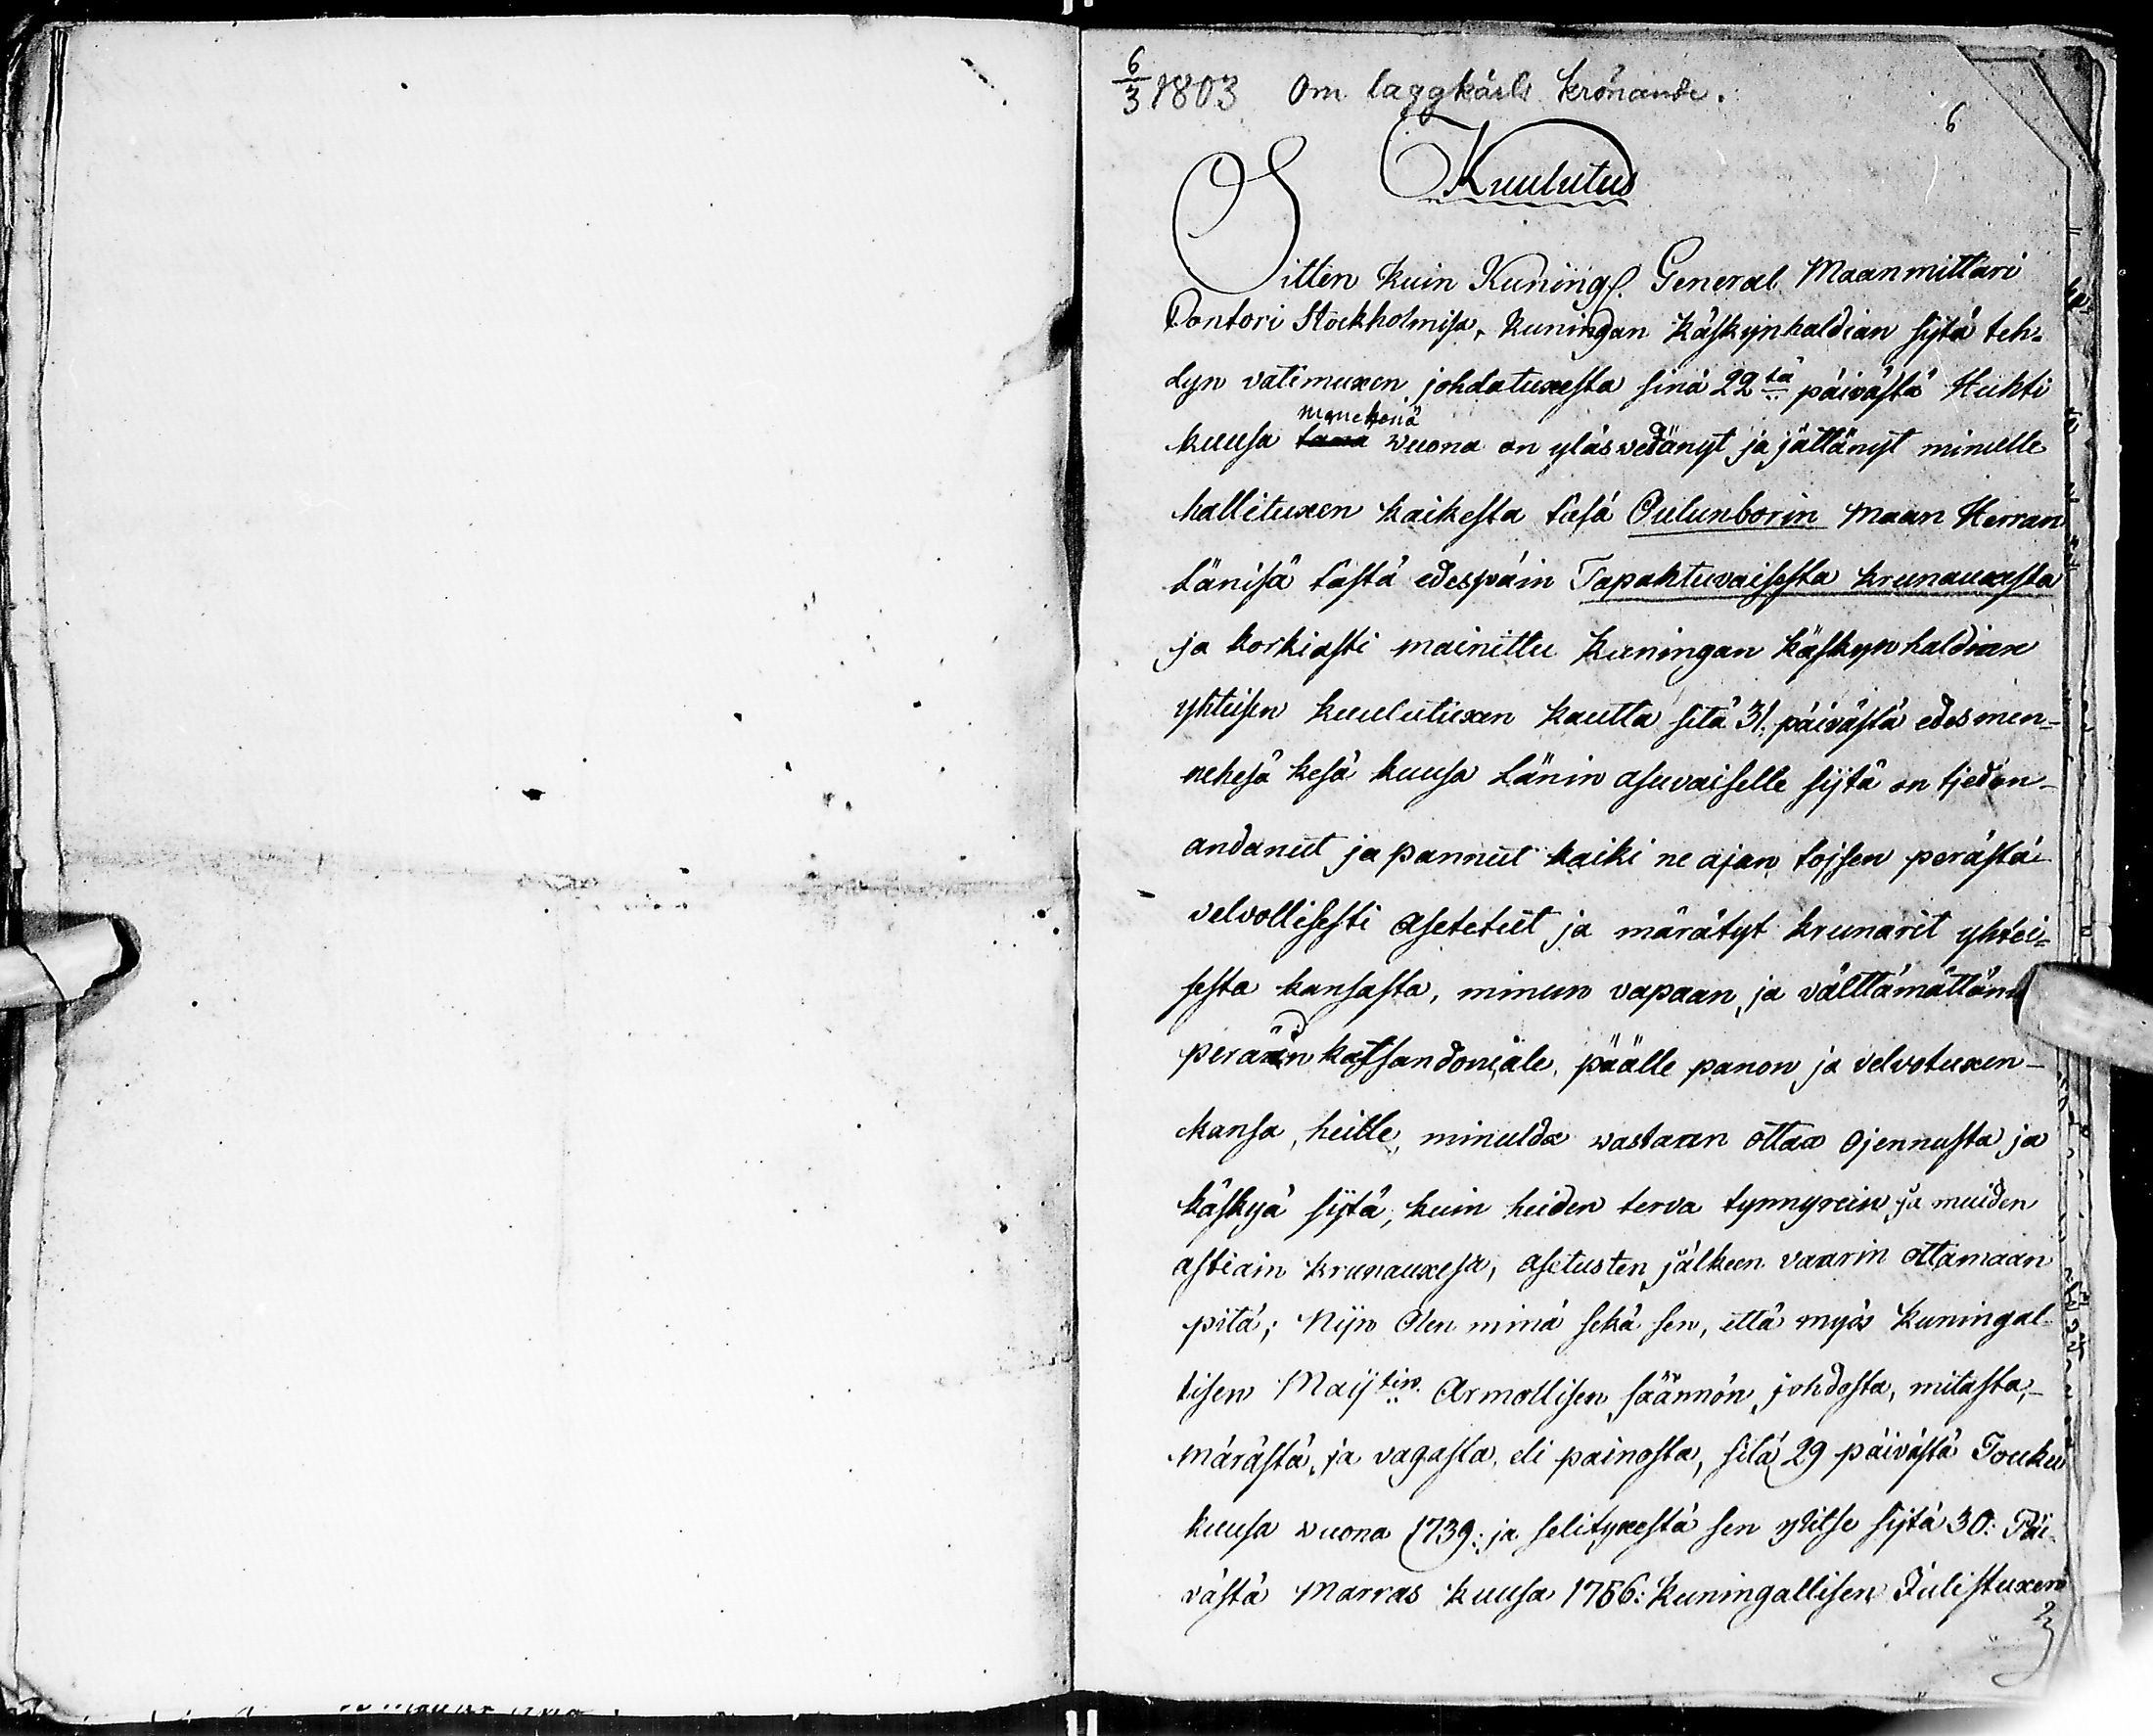 6/3 1803 Om laggkärls krönande.
6
Kuulutus
Sitten kuin Kuningl. General Maanmittari
Contori Stockholmisa, kuningan käskynhaldian sijtä teh-
dyn vatimuxen johdatuxesta sinä 22tä päivästä Huhti
kuusa menehenä wuona on yläswetänyt ja jättänyt minulle
hallituxen kaikesta täsä Oulunborin Maan Herran
Länisä tästä edespäin Tapahtuvaisesta krunauxesta
ja korkiasti mainittu kuningan käskyn haldian
yhteisen kuulutuxen kautta sitä 31. päivästä edesmen-
nehesä kesä kuusa Länin asuvaiselle sijtä on tjedon-
andanut ja pannut kaiki ne ajan tojsen perästä
velvollisesti asetetut ja märätyt krunarit yhtei-
sesta kansasta, minun vapaan, ja välttämättäm
perään katsandonäle, päälle panon ja velvotuxen-
kansa, heille, minulda wastaan ottaa ojennusta ja
käskyä sijtä, kuin heiden terva tynnyrein ja muiden
astiain krunauxesa, asetusten jälkeen vaarin ottamaan
pitä; Nijn Olen minä sekä sen, että myös kuningal-
lisen Maijtin Armollisen säännön, johdosta, mitasta,
märästä, ja vagasta, eli painosta, sitä 29 päivästä Touku
kuusa wuona 1739: ja selityxestä sen ylitse sijtä 30: Päi-
västä Marras kuusa 1756: kuningallisen Julistuxen